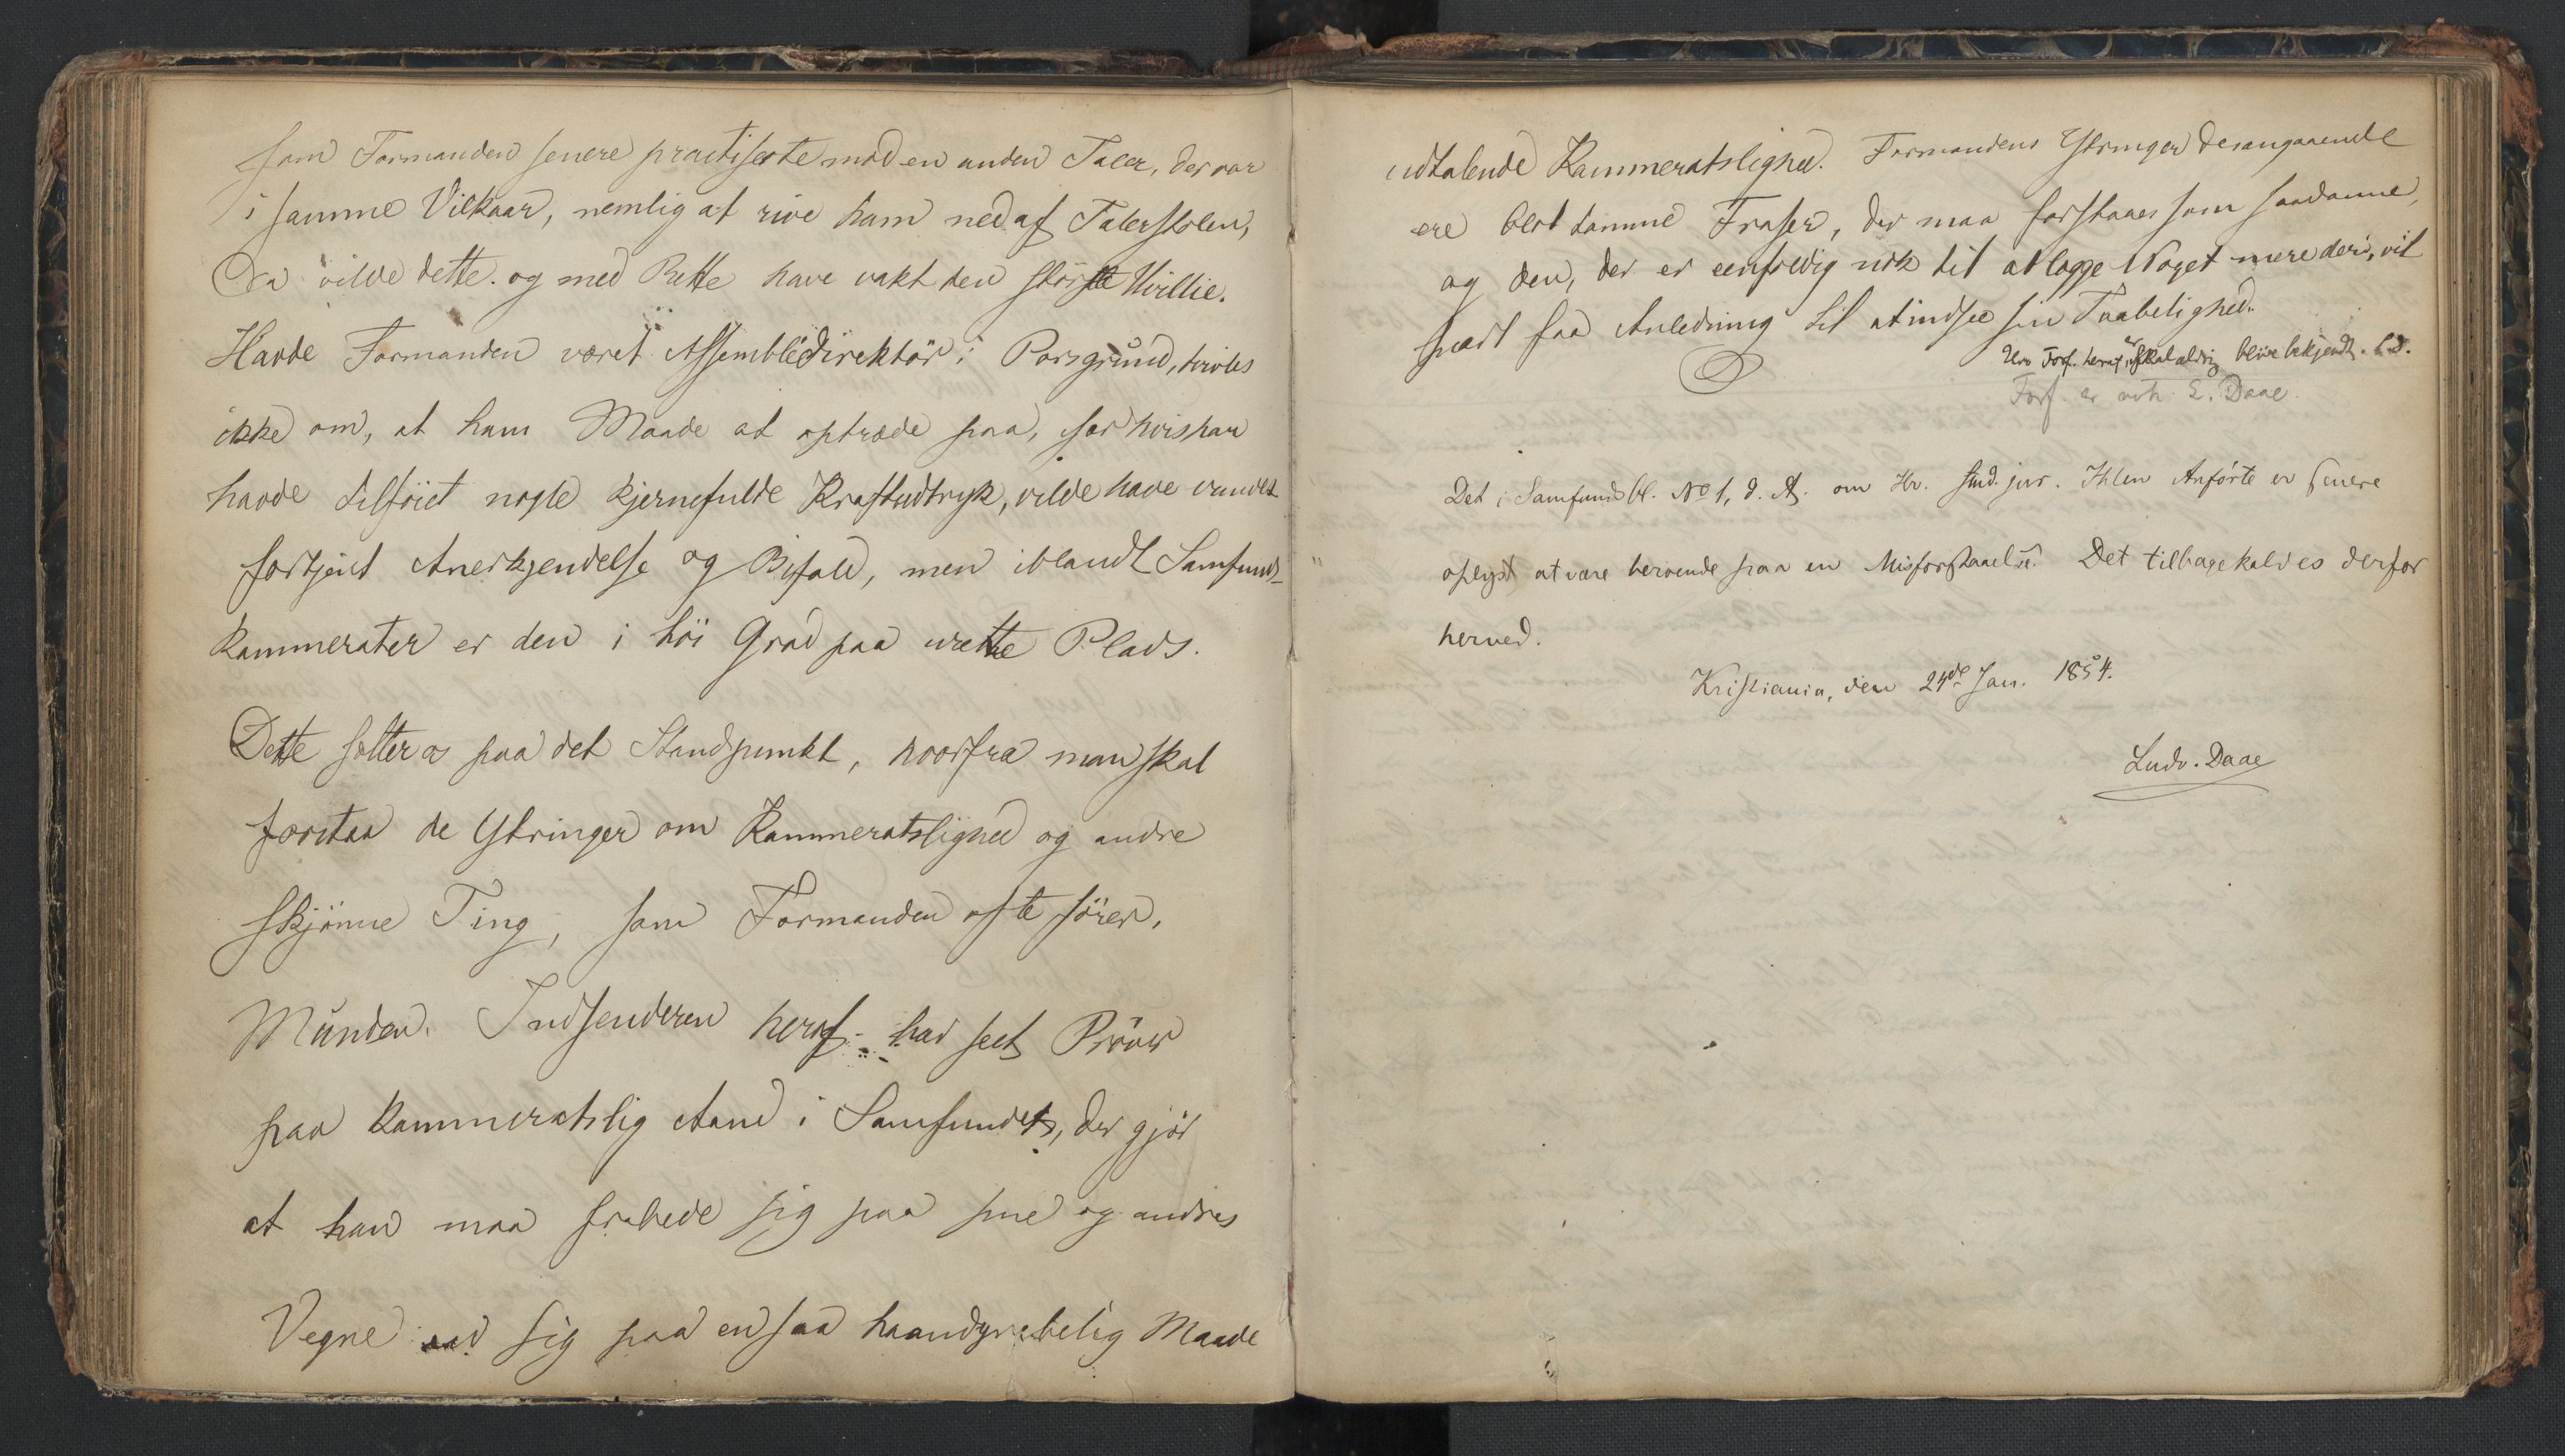 som Formanden senere practiserte mod en anden Taler, der var
i samme Vilkaar, nemlig at rive ham ned af Talerstolen,
Da vilde dette og med Rette have vakt den störste Uvillie.
Havde Formanden været Assemblédirektör i Porsgrund, tvivles
ikke om, at hans Maade at optræde paa, især hvis han
havde tilföiet nogle kjernefulde Kraftudtryk, vilde have vundet
fortjent Anerkjendelse og Bifald, men iblandt Samfunds-
kammerater er den i höi Grad paa urette Plads.
Dette sætter os paa det Standpunkt, hvorfra man skal
forstaa de Ytringer om Kammeratslighed og andre
skjönne Ting, som Formanden ofte förer,
Munden. Indsenderen heraf har seet Pröver
paa kammeratslig Aand i Samfundet, der gjör
at han maa frabede sig paa sine og andres
Vegne sig paa en saa haandgribelig Maade
udtalende Kammeratslighed. Formandens Ytringer desangaaende
ere blot tomme Fraser, der maa forstaaes som saadanne,
og den, der er eenfoldig nok til at lægge Noget mere deri, vil
snart faa Anledning til at indsee sin Taabelighed.
Hvo Forf. heraf er, skal aldrig blive bekjendt. L.D.
Forf. er L. Daae.
Det i Samfundsbl. No 1, d. A. om Hr. stud. jur. Ihlen Anförte er senere
oplyst at være beroende paa en Misforstaaelse. Det tilbagekaldes derfor
herved.
Kristiania, den 24de Jan. 1854.
Ludv. Daae